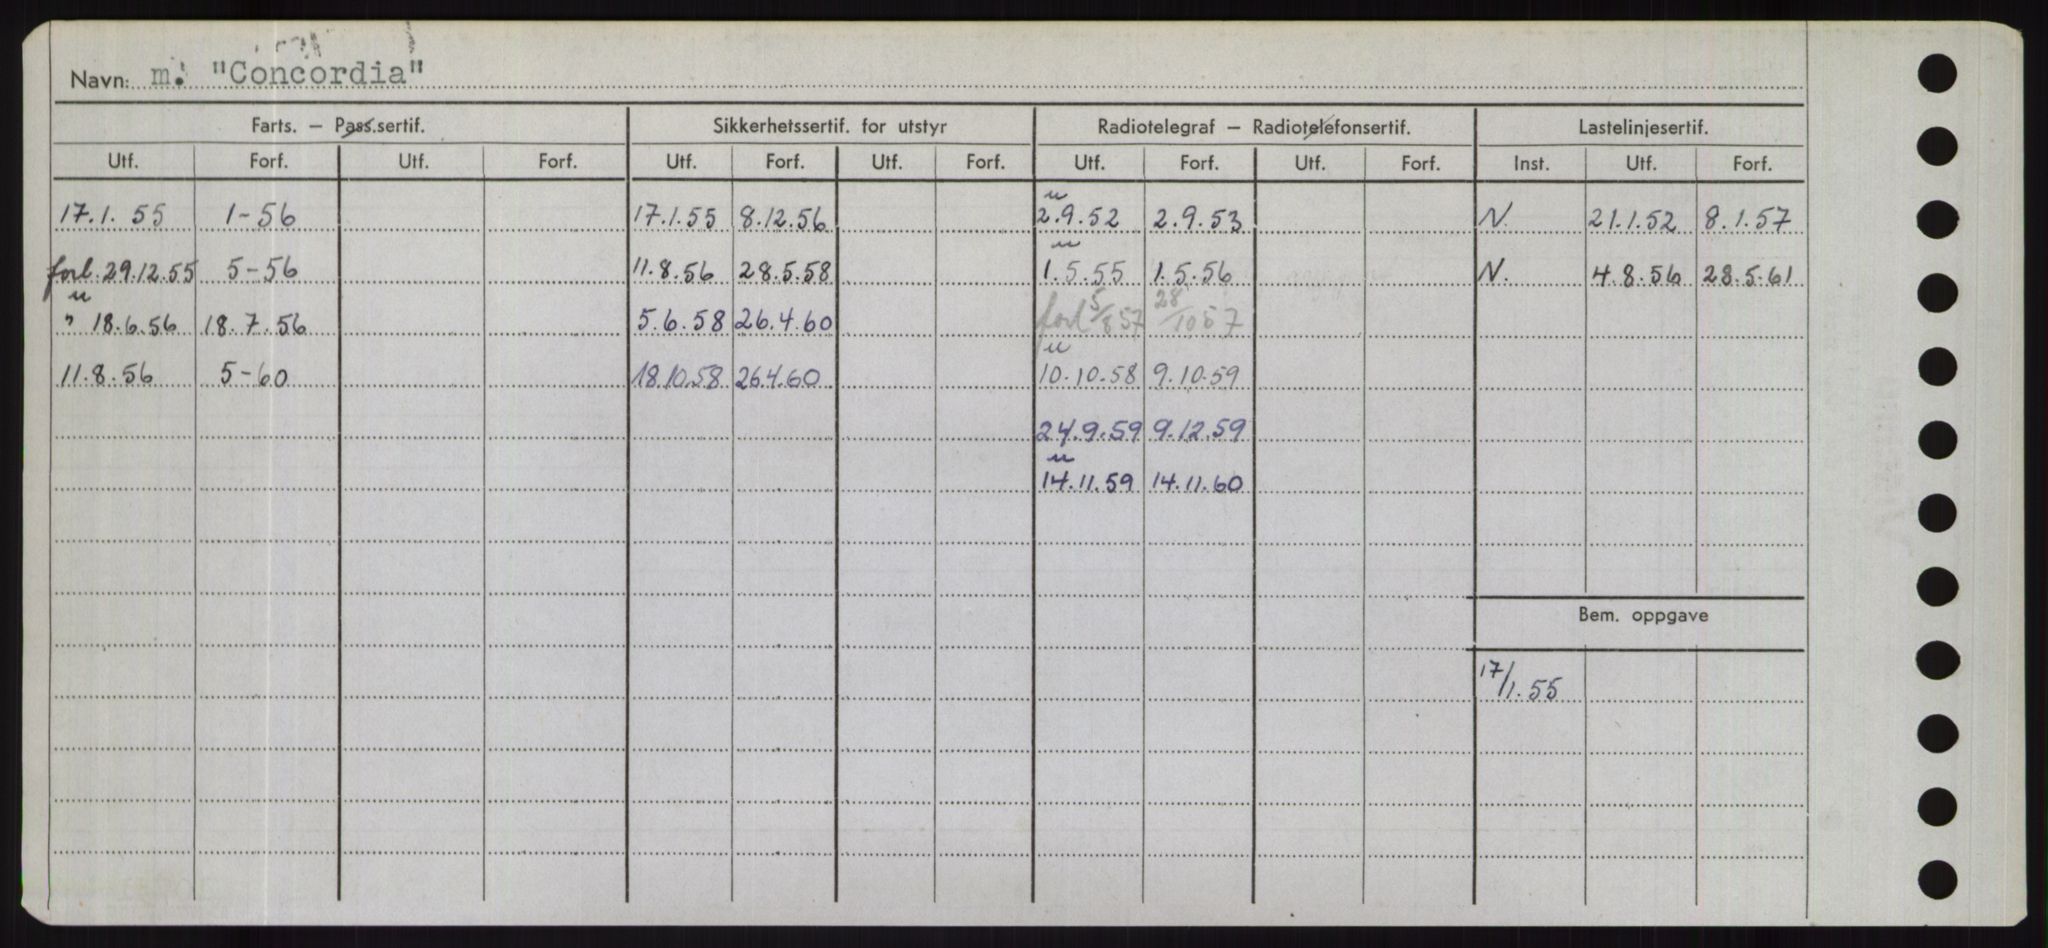 Navn: m. "Concordia"
Farts. – Pass.sertif. Sikkerhetssertif. for utstyr Radiotelegraf – Radiotelefonsertif. Lastelinjesertif.
Utf. Forf. Utf. Forf. Utf. Forf. Utf. Forf. Utf. Forf. Utf. Forf. Inst. Utf. Forf.
u
17.1.55 1-56 17.1.55 8.12.56 2.9.52 2.9.53 N. 21.1.52 8.1.57
u
forl. 29.12.55 5-56 11.8.56 28.5.58 1.5.55 1.5.56 N. 4.8.56 28.5.61
u
" 18.6.56 18.7.56 5.6.58 26.4.60 forl 5/8 57 28/10 57
u
11.8.56 5-60 18.10.58 26.4.60 10.10.58 9.10.59
24.9.59 9.12.59
u
14.11.59 14.11.60
Bem. oppgave
17/1.55